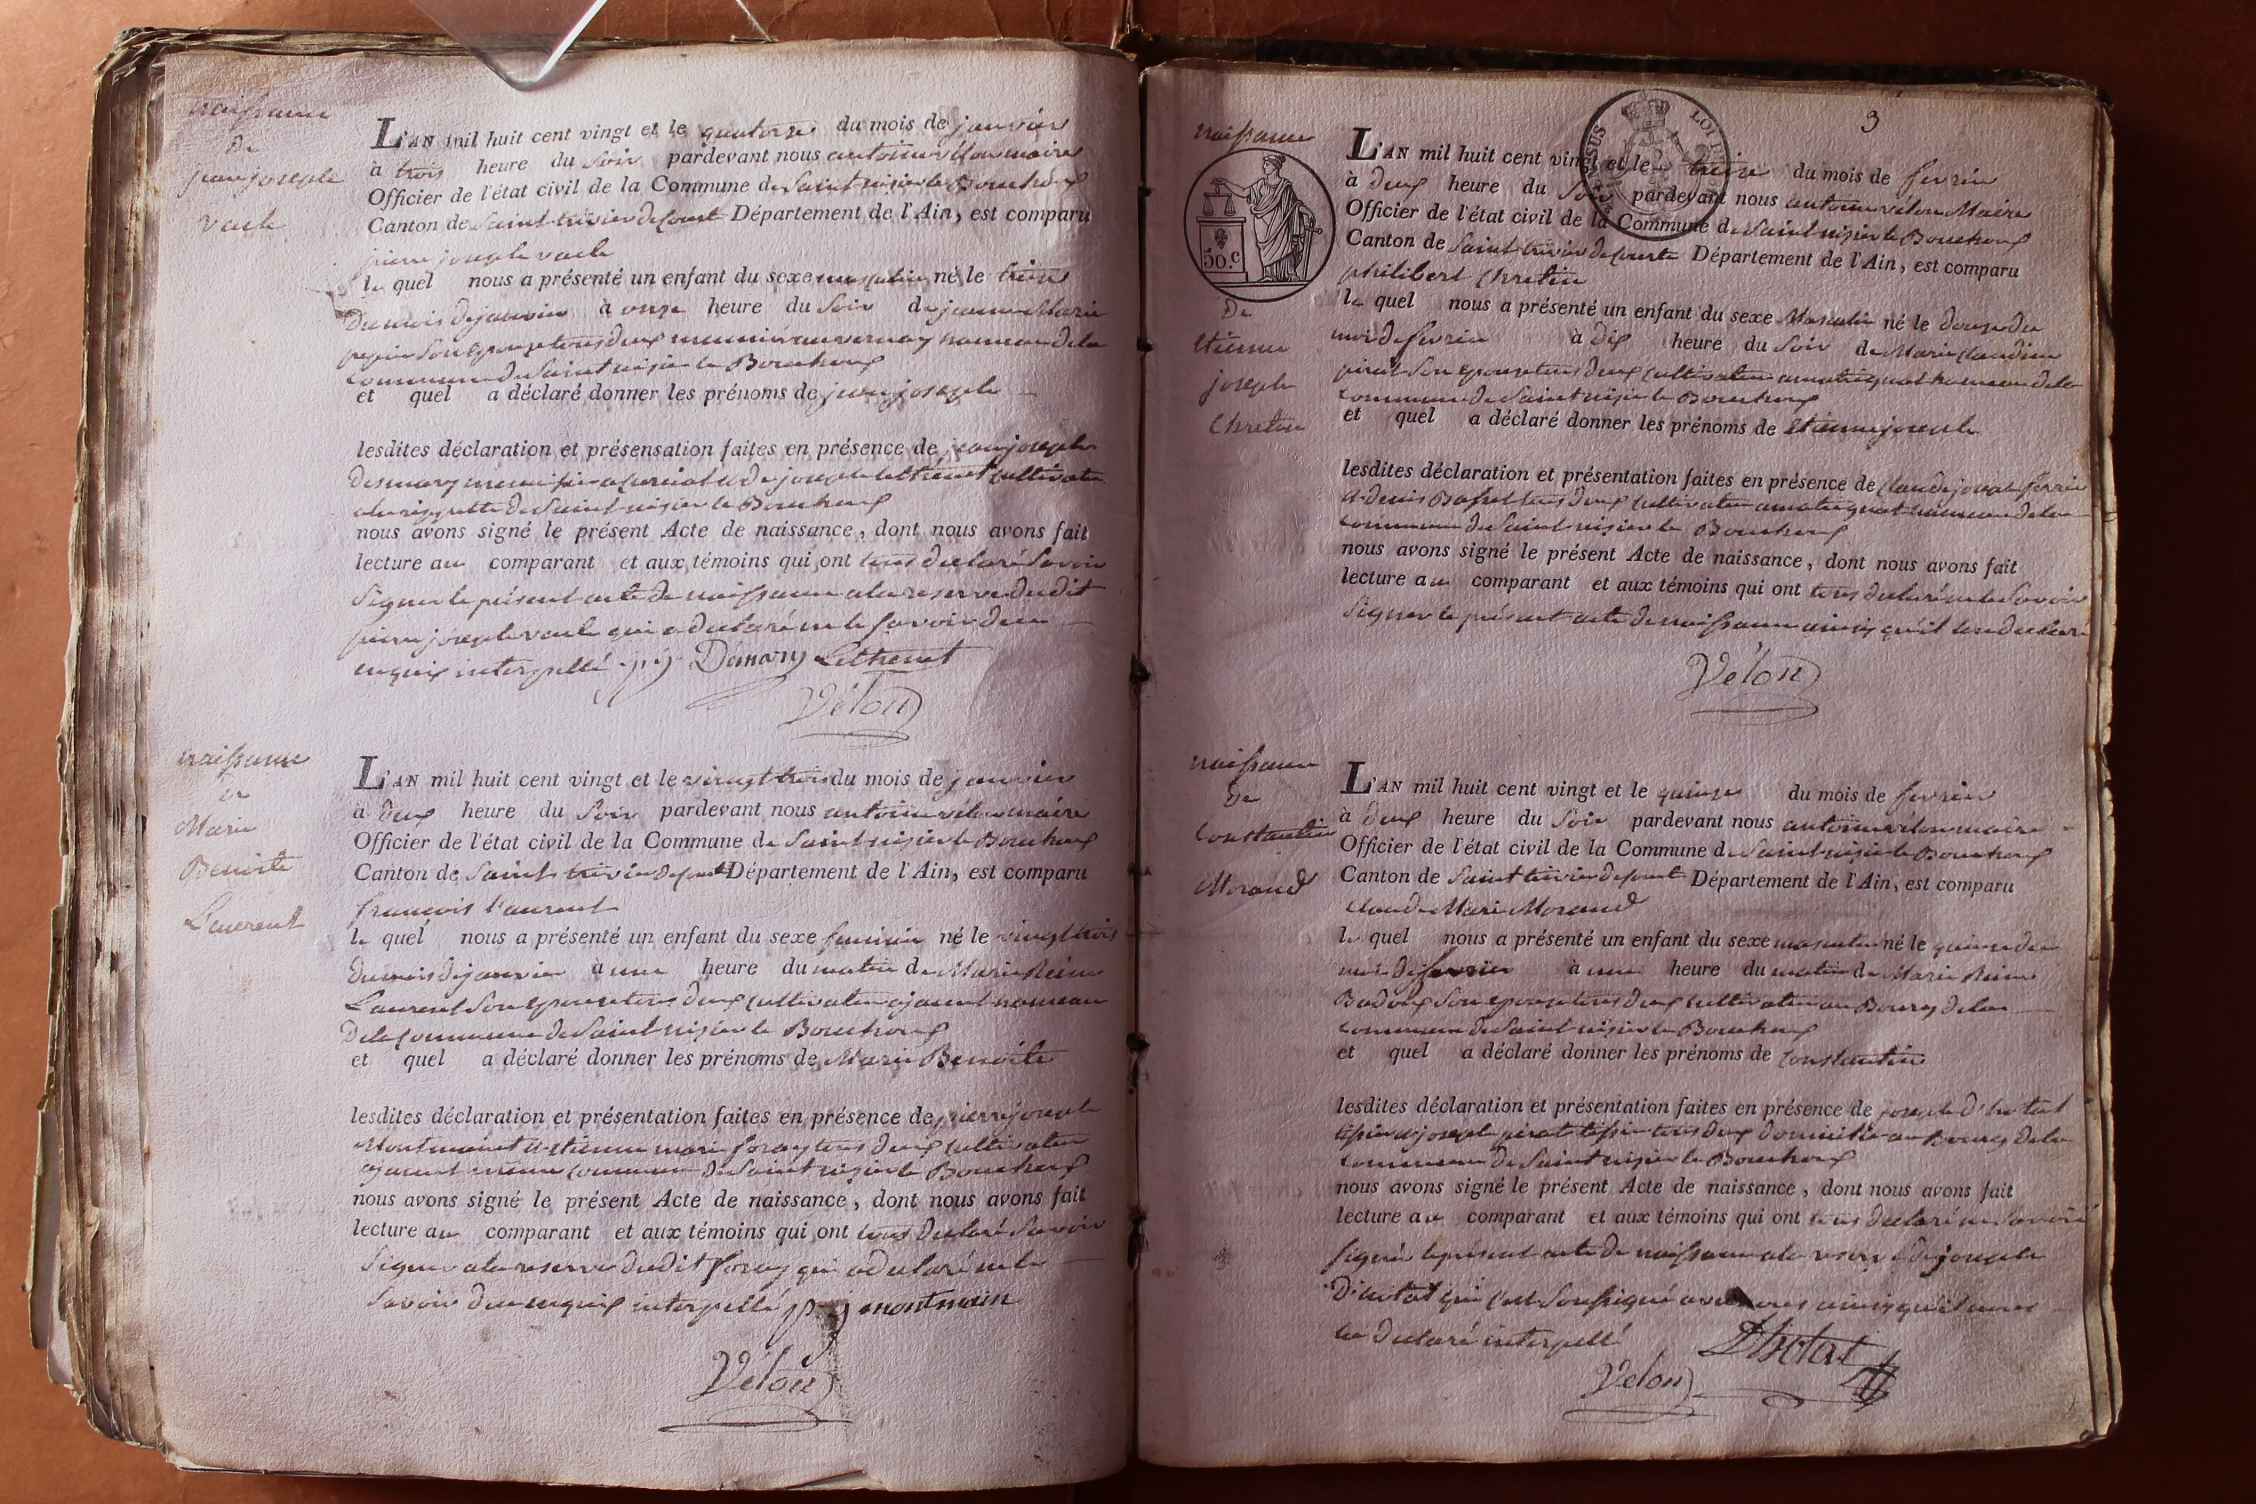 naissance
De
jean joseph
vacle
L'AN mil huit cent vingt et le quatorze du mois de janvier
à trois heure du Soir pardevant nous antoine vélon maire
Officier de l'état civil de la Commune de Saint nisier le Bouchoux
Canton de Saint trivier de Court Département de l'Ain, est comparu
pierre joseph vacle
le quel nous a présenté un enfant du sexe masculin né le treize
du mois de janvier à onze heure du Soir de jeanne Marie
son epouse tous deux hameau de la
commune de Saint nisier le Bouchoux
et quel a déclaré donner les prénoms de jean joseph
lesdites déclaration et présensation faites en présence de jean joseph
de joseph cultivateur
de Saint nisier le Bouchoux
nous avons signé le présent Acte de naissance, dont nous avons fait
lecture au comparant et aux témoins qui ont tous declaré Savoir
Signer le présent acte de naissance a la reserve dudit
pierre joseph vacle qui a declaré ne le savoir de ce
enquis interpellé Démary Lethenet
Vélon
naissance
de
Marie
Benoite
Laurent
L'AN mil huit cent vingt et le vingt trois du mois de janvier
à deux heure du Soir pardevant nous antoine vélon maire
Officier de l'état civil de la Commune de Saint nisier le Bouchoux
Canton de Saint trivier de Court Département de l'Ain, est comparu
francois Laurent
le quel nous a présenté un enfant du sexe feminin né le vingt trois
du mois de janvier à une heure du matin de Marie Reine
Laurent Son epouse tous deux cultivateur hameau
De la commune de Saint nisier le Bouchoux
et quel a déclaré donner les prénoms de Marie Benoite
lesdites déclaration et présentation faites en présence de pierre joseph
Montmain et etienne marie foray tous deux cultivateur
commune de Saint nisier le Bouchoux
nous avons signé le présent Acte de naissance, dont nous avons fait
lecture au comparant et aux témoins qui ont tous declaré Savoir
Signer a la reserve dudit foray qui a declaré ne le
Savoir de ce enquis interpellé montmain
Vélon
3
naissance
50.c
De
etienne
joseph
Chretin
L'AN mil huit cent vingt et le treize du mois de fevrier
à deux heure du Soir pardevant nous antoine vélon Maire
Officier de l'état civil de la Commune de Saint nisier le Bouchoux
Canton de Saint trivier de Courte Département de l'Ain, est comparu
philibert Chretin
le quel nous a présenté un enfant du sexe Masculin né le douze du
moi de fevrier à dix heure du Soir de Marie Claudine
pirat Son epouse tous deux cultivateur hameau de la
commune de Saint nisier le Bouchoux
et quel a déclaré donner les prénoms de etienne joseph
lesdites déclaration et présentation faites en présence de Claude
et denis tous deux cultivateur hameau de la
commune de Saint nisier le Bouchoux
nous avons signé le présent Acte de naissance, dont nous avons fait
lecture au comparant et aux témoins qui ont tous declaré ne le Savoir
Signer le présent acte de naissance ainsy qu'il l'on declaré
Vélon
naissance
de
Constantin
Morand
L'AN mil huit cent vingt et le quinze du mois de fevrier
à deux heure du Soir pardevant nous antoine vélon maire
Officier de l'état civil de la Commune de Saint nisier le Bouchoux
Canton de Saint trivier de Court Département de l'Ain, est comparu
Claude Marie Morand
le quel nous a présenté un enfant du sexe masculin né le quinze du
moi de fevrier à une heure du matin de Marie Reine
Badoux Son epouse tous deux cultivateur au Bourg de la
commune de Saint nisier le Bouchoux
et quel a déclaré donner les prénoms de Constantin
lesdites déclaration et présentation faites en présence de joseph
joseph pirat tous deux domicilié au Bourg de la
commune de Saint nisier le Bouchoux
nous avons signé le présent Acte de naissance, dont nous avons fait
lecture au comparant et aux témoins qui ont tous declaré ne Savoir
Signer le présent acte de naissance a la reserve de joseph
qui c'est Soussigné avec nous ainsy qu'il nous
l'a declaré interpellé
Vélon